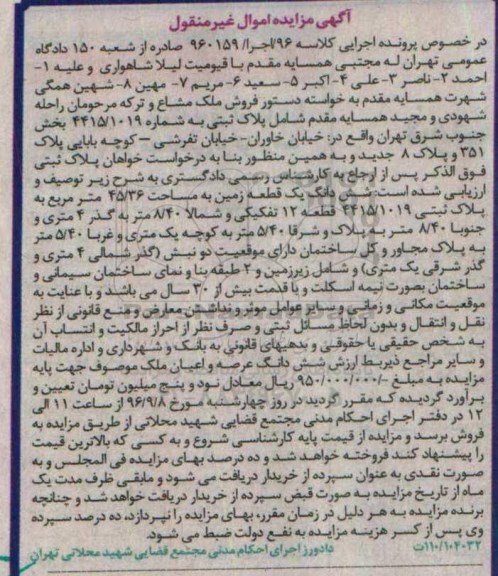 آگهی مزایده اموال غیرمنقول
در خصوص پرونده اجرایی کلاسه ۹۶/اجرا/ ۹۶۰۱۵۹ صادره از شعبه ۱۵۰ دادگاه
عمومی تهران له مجتبی همسایه مقدم با قیومیت لیلا شاهواری و علیه ۱-
احمد ۲- ناصر ۳-علی ۴- اکبر ۵-سعید ۶- مریم ۷- مهین ۸-شهین همگی
شهرت همسایه مقدم به خواسته دستور فروش ملک مشاع و ترکه مرحومان راحله
شهودی و مجید همسایه مقدم شامل پلاک ثبتی به شماره ۴۴۱۵/۱۰۱۹ بخش
جنوب شرق تهران واقع در: خیابان خاوران- خیابان تفرشی – کوچه بابایی پلاک
۳۵۱ و پلاک ۸ جدید و به همین منظور بنا به درخواست خواهان پلاک ثبتی
فوق الذکر پس از ارجاع به کارشناس رسمی دادگستری به شرح زیر توصیف و
ارزیابی شده است: شش دانگ یک قطعه زمین به مساحت ۴۵/۳۶ متر مربع به
پلاک ثبتی ۴۴۱۵/۱۰۱۹ قطعه ۱۲ تفکیکی و شمالا ۸/۴۰ متر به گذر ۴ متری و
جنوبا ۸/۴۰ متر به پلاک و شرقا ۵/۴۰ متر به کوچه یک متری و غربا ۵/۴۰ متر
به پلاک مجاور و کل ساختمان دارای موقعیت دو نبش (گذر شمالی ۴ متری و
گذر شرقی یک متری) و شامل زیرزمین و ۲ طبقه بنا و نمای ساختمان سیمانی و
ساختمان بصورت نیمه اسکلت و با قدمت بیش از ۳۰ سال می باشد و با عنایت به
موقعیت مکانی و زمانی و سایر عوامل موثر و نداشتن معارض و منع قانونی از نظر
نقل و انتقال و بدون لحاظ مسائل ثبتی و صرف نظر از احراز مالکیت و انتساب آن
به شخص حقیقی یا حقوقی و بدهیهای قانونی به بانک و شهرداری و اداره مالیات
و سایر مراجع ذیربط ارزش شش دانگ عرصه و اعیان ملک موصوف جهت پایه
مزایده به مبلغ -/۹۵۰/۰۰۰/۰۰۰ ریال معادل نود و پنج میلیون تومان تعیین و
برآورد گردیده که مقرر گردید در روز چهارشنبه مورخ ۹۶/۹/۸ از ساعت ۱۱ الی
۱۲ در دفتر اجرای احکام مدنی مجتمع قضایی شهید محلاتی از طریق مزایده به
فروش برسد و مزایده از قیمت پایه کارشناسی شروع و به کسی که بالاترین قیمت
را پیشنهاد کند فروخته خواهد شد و ده درصد بهای مزایده فی المجلس و به
صورت نقدی به عنوان سپرده از خریدار دریافت می شود و مابقی ظرف مدت یک
ماه از تاریخ مزایده به صورت قبض سپرده از خریدار دریافت خواهد شد و چنانچه
برنده مزایده به هر دلیل در زمان مقرر، بهای مزایده را نپردازد، ده درصد سپرده
وی پس از کسر هزینه مزایده به نفع دولت ضبط می شود.
۱۱۰/۱۰۴۰۳۲ت دادورز اجرای احکام مدنی مجتمع قضایی شهید محلاتی تهران